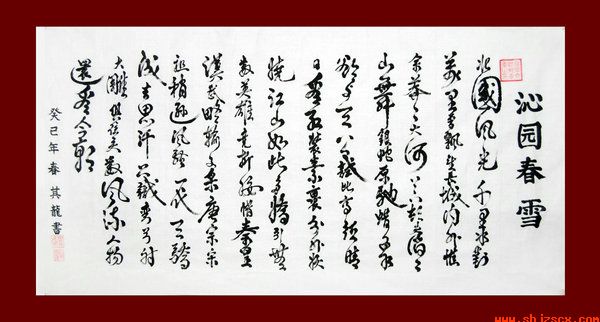 沁园春雪
北國風光千里冰封
萬里雪飘望長城内外惟
余莽莽大河上下顿失滔滔
山舞銀蛇原馳蜡象
欲与天公試比高須晴
日看紅装素裹分外妖
娆江山如此多嬌引無
數英雄竞折腰惜秦皇
漢武略輸文采唐宗宋
祖稍遜風騷一代天驕
成吉思汗只識弯弓射
大雕俱往矣數風流人物
還看今朝
癸巳年春其龍書